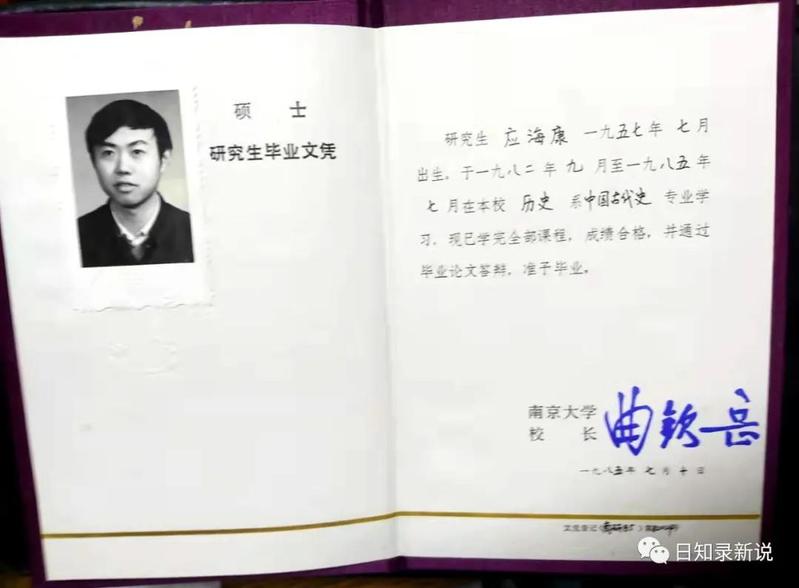 硕 士
研究生毕业文凭
研究生 应海康 一九五七年 七月
出生，于一九八二年 九 月至一九八五年
七月在本校 历史 系中国古代史 专业学
习，现已学完全部课程，成绩合格，并通过
毕业论文答辩，准予毕业。
南京大学
校 长 曲钦岳
一九八五年 七 月 十 日
文凭登记
日知录新说